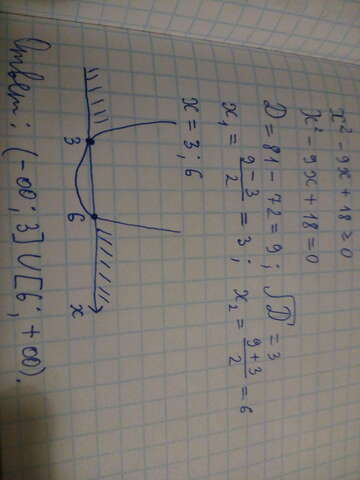 x² - 9x + 18 ≥ 0
x² - 9x + 18 = 0
D = 81 - 72 = 9; √D = 3
x₁ = (9 - 3)/2 = 3; x₂ = (9 + 3)/2 = 6
x = 3; 6
3 6 x
Ответ: (-∞; 3] ∪ [6; +∞).